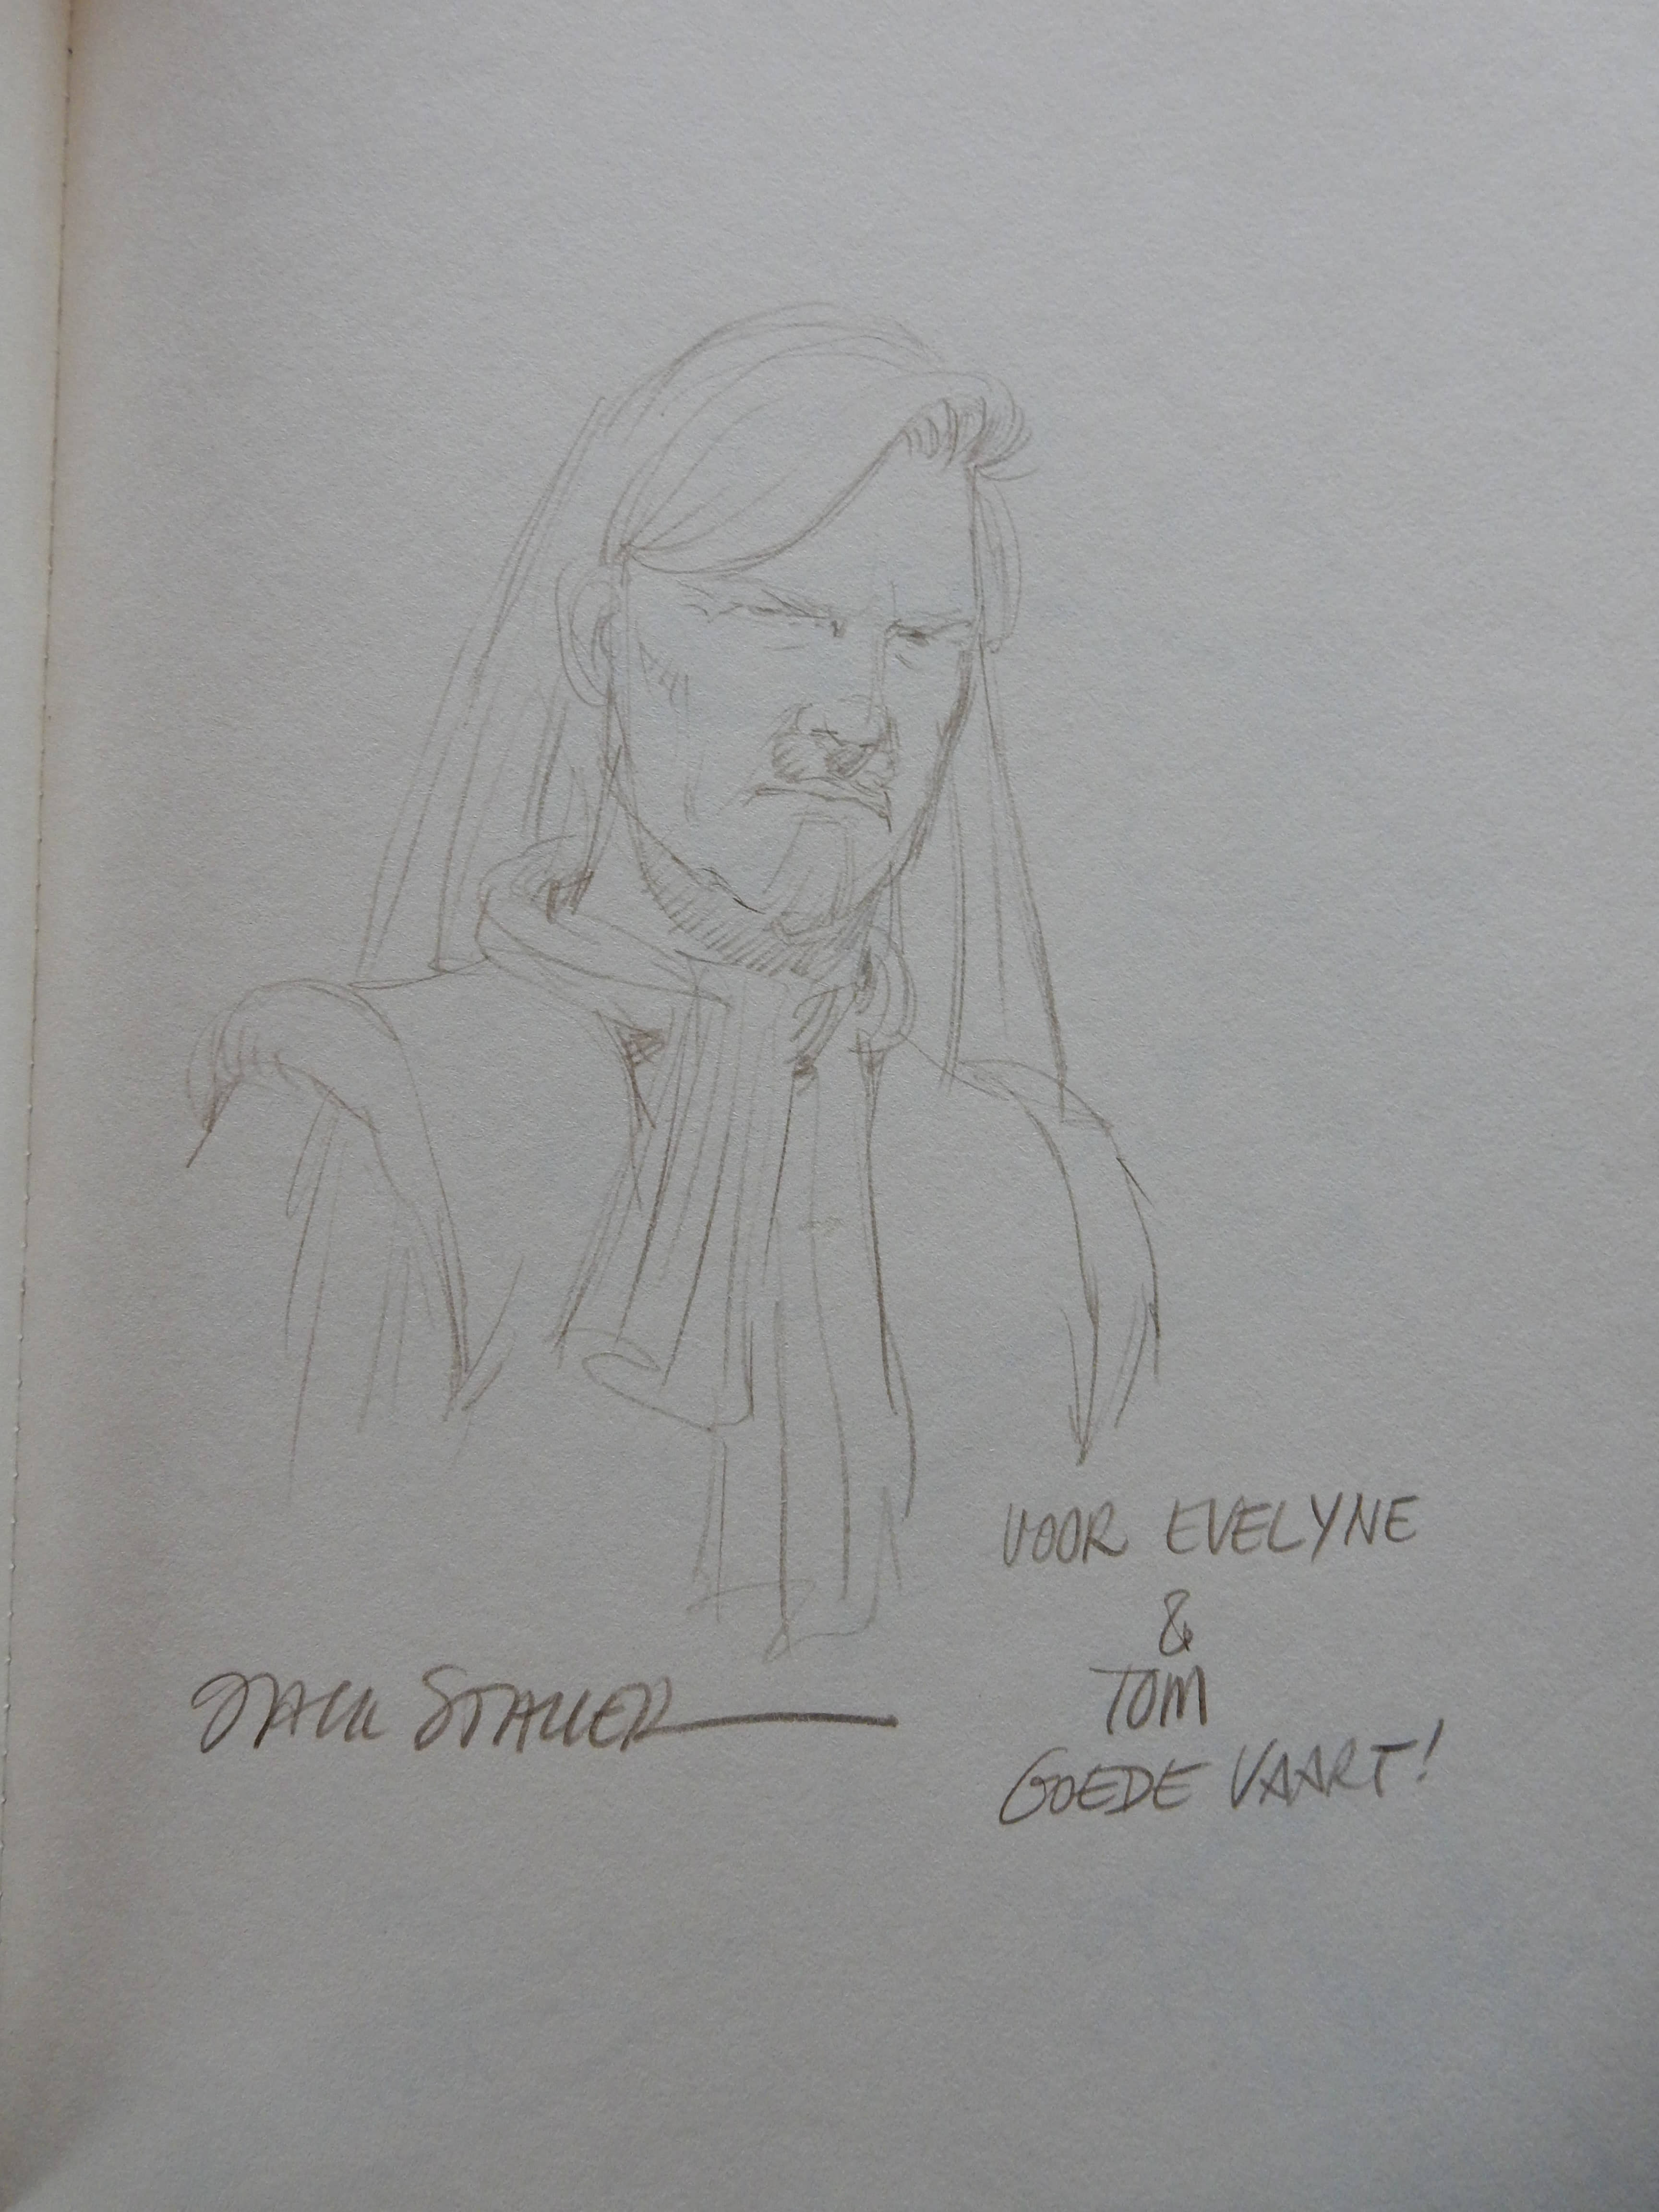 VOOR EVELYNE
&
TOM
GOEDE VAART!
STALLER